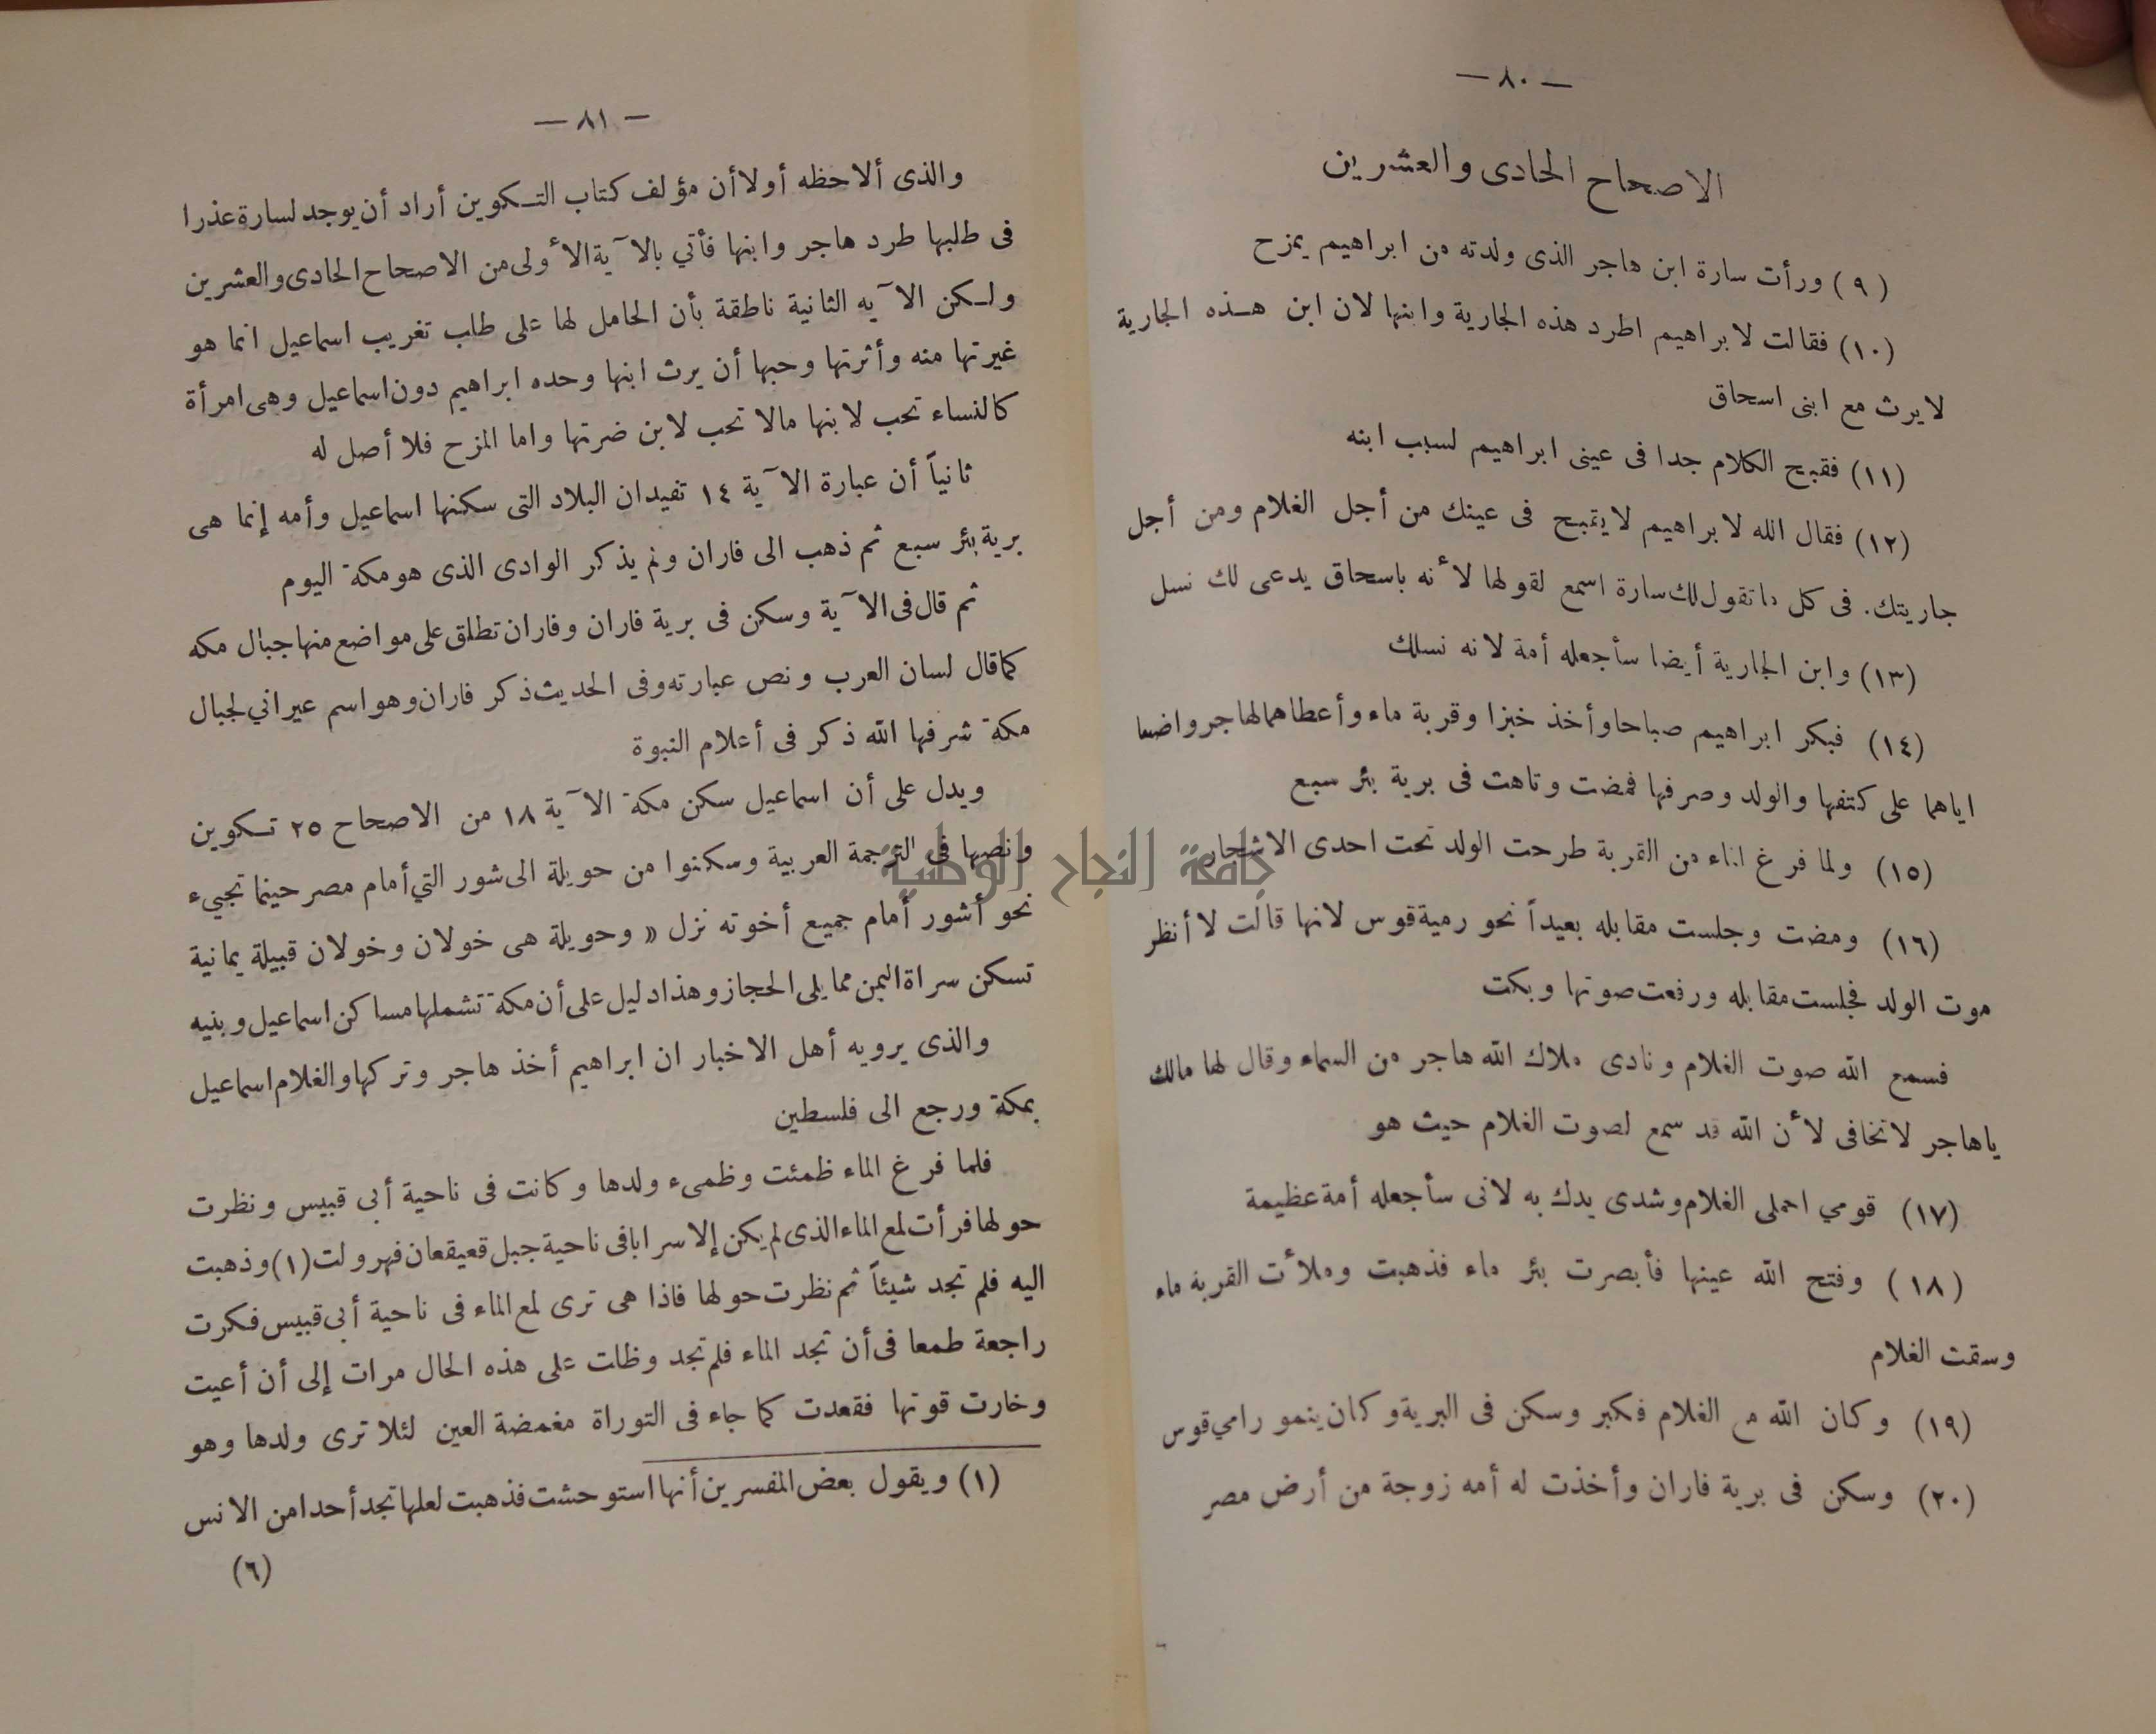 — ٨٠ —
الاصحاح الحادى والعشرين
(٩) ورأت سارة ابن هاجر الذى ولدته من ابراهيم يمزح
(١٠) فقالت لابراهيم اطرد هذه الجارية وابنها لان ابن هـذه الجارية
لا يرث مع ابنى اسحاق
(١١) فقبح الكلام جدا فى عينى ابراهيم لسبب ابنه
(١٢) فقال الله لابراهيم لا يقبح فى عينك من أجل الغلام ومن أجل
جاريتك. فى كل ما تقول لك سارة اسمع لقولها لأنه باسحاق يدعى لك نسل
(١٣) وابن الجارية أيضا سأجعله أمة لانه نسلك
(١٤) فبكر ابراهيم صباحا وأخذ خبزا وقربة ماء وأعطاهما لهاجر واضعا
اياهما على كتفها والولد وصرفها فمضت وتاهت فى برية بئر سبع
(١٥) ولما فرغ الماء من القربة طرحت الولد تحت احدى الاشجار
(١٦) ومضت وجلست مقابله بعيداً نحو رمية قوس لانها قالت لا أنظر
موت الولد فجلست مقابله ورفعت صوتها وبكت
فسمع الله صوت الغلام ونادى ملاك الله هاجر من السماء وقال لها مالك
ياهاجر لا تخافى لأن الله قد سمع لصوت الغلام حيث هو
(١٧) قومي احملى الغلام وشدى يدك به لانى سأجعله أمة عظيمة
(١٨) وفتح الله عينها فأبصرت بئر ماء فذهبت وملأت القربة ماء
وسقت الغلام
(١٩) وكان الله مع الغلام فكبر وسكن فى البرية وكان ينمو رامي قوس
(٢٠) وسكن فى برية فاران وأخذت له أمه زوجة من أرض مصر
— ٨١ —
والذى ألاحظه أولا أن مؤلف كتاب التـكوين أراد أن يوجد لسارة عذرا
فى طلبها طرد هاجر وابنها فأتي بالآية الأولى من الاصحاح الحادى والعشرين
ولـكن الآيه الثانية ناطقة بأن الحامل لها على طلب تغريب اسماعيل انما هو
غيرتها منه وأثرتها وحبها أن يرث ابنها وحده ابراهيم دون اسماعيل وهى امرأة
كالنساء تحب لابنها مالا تحب لابن ضرتها واما المزح فلا أصل له
ثانياً أن عبارة الآية ١٤ تفيدان البلاد التى سكنها اسماعيل وأمه إنما هى
برية بئر سبع ثم ذهب الى فاران ولم يذكر الوادى الذى هو مكة اليوم
ثم قال فى الآية وسكن فى برية فاران وفاران تطلق على مواضع منها جبال مكه
كما قال لسان العرب ونص عبارته وفى الحديث ذكر فاران وهو اسم عبراني لجبال
مكة شرفها الله ذكر فى أعلام النبوة
ويدل على أن اسماعيل سكن مكة الآية ١٨ من الاصحاح ٢٥ تـكوين
ونصها فى الترجمة العربية وسكنوا من حويلة الى شور التي أمام مصر حينما تجيء
نحو أشور أمام جميع أخوته نزل « وحويلة هى خولان وخولان قبيلة يمانية
تسكن سراة اليمن مما يلى الحجاز وهذا دليل على أن مكة تشملها مساكن اسماعيل وبنيه
والذى يرويه أهل الاخبار ان ابراهيم أخذ هاجر وتركها والغلام اسماعيل
بمكة ورجع الى فلسطين
فلما فرغ الماء ظمئت وظمىء ولدها وكانت فى ناحية أبى قبيس ونظرت
حولها فرأت لمع الماء الذى لم يكن إلا سرابا فى ناحية جبل قعيقعان فهرولت (١) وذهبت
اليه فلم تجد شيئاً ثم نظرت حولها فاذا هى ترى لمع الماء فى ناحية أبى قبيس فكرت
راجعة طمعا فى أن تجد الماء فلم تجد وظلت على هذه الحال مرات إلى أن أعيت
وخارت قوتها فقعدت كما جاء فى التوراة مغمضة العين لئلا ترى ولدها وهو
(١) ويقول بعض المفسرين أنها استوحشت فذهبت لعلها تجد أحدا من الانس
(٦)
جامعة النجاح الوطنية